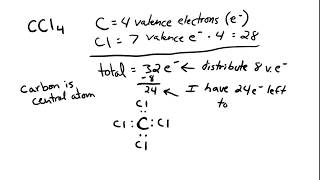 CCl4 C = 4 valence electrons (e⁻)
Cl = 7 valence e⁻ · 4 = 28
total = 32 e⁻ ← distribute 8 v.e⁻
-8
24 ← I have 24e⁻ left
to
Carbon is
central atom
Cl
Cl : C : Cl
Cl